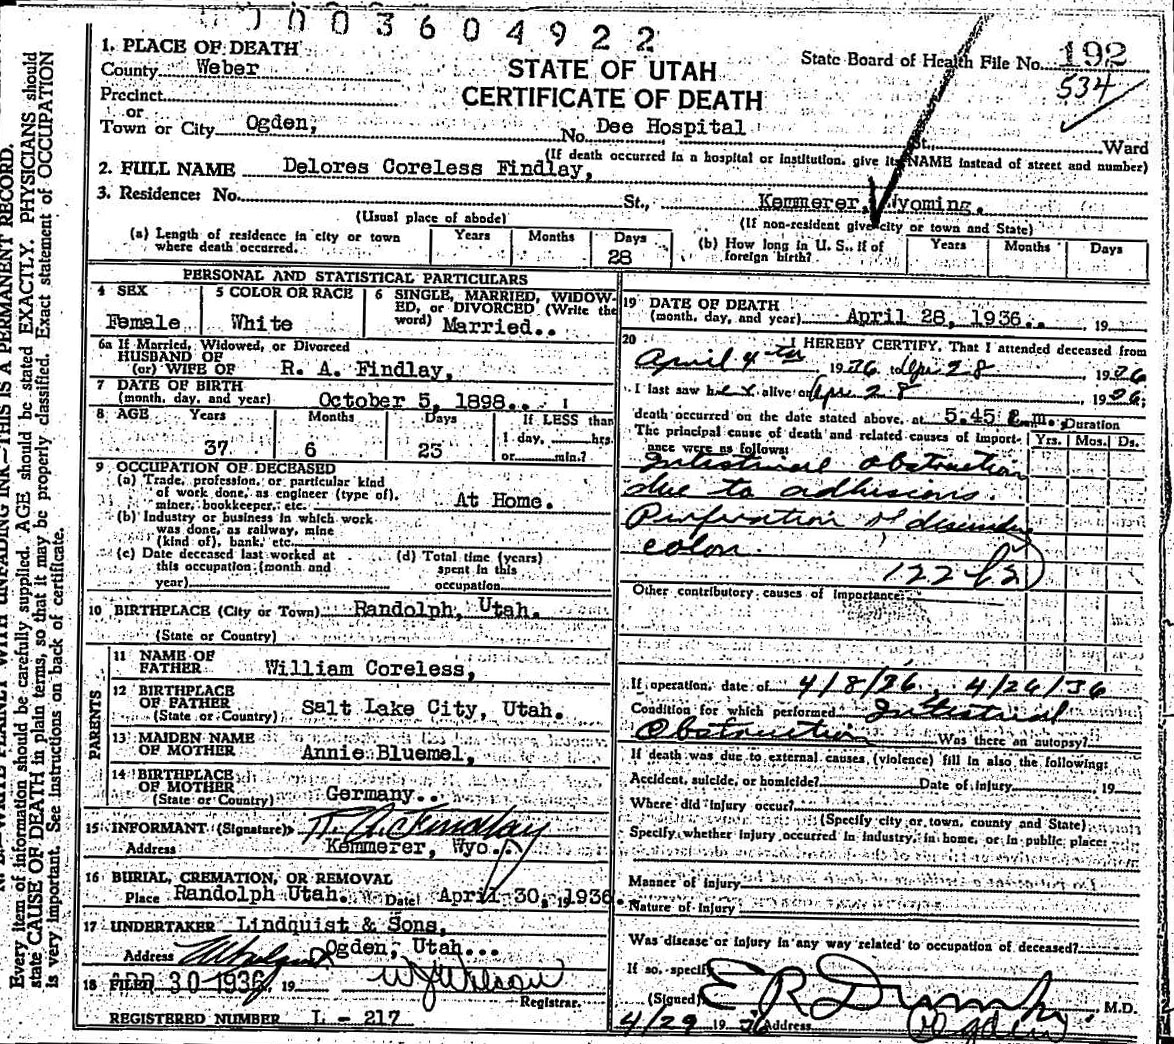 0003604922
1. PLACE OF DEATH
County Weber
STATE OF UTAH
State Board of Health File No. 192
Precinct
CERTIFICATE OF DEATH
534
or
Town or City Ogden, No. Dee Hospital St. Ward
(If death occurred in a hospital or institution, give its NAME instead of street and number)
2. FULL NAME Delores Coreless Findlay,
3. Residence: No. St., Kemmerer, Wyoming.
(Usual place of abode) (If non-resident give city or town and State)
(a) Length of residence in city or town where death occurred. Years Months Days 28
(b) How long in U. S., if of foreign birth? Years Months Days
PERSONAL AND STATISTICAL PARTICULARS
4 SEX Female
5 COLOR OR RACE White
6 SINGLE, MARRIED, WIDOWED, or DIVORCED (Write the word) Married..
6a If Married, Widowed, or Divorced
HUSBAND OF
(or) WIFE OF R. A. Findlay,
7 DATE OF BIRTH
(month, day, and year) October 5, 1898..
8 AGE Years Months Days If LESS than
37 6 23 1 day, hrs.
or min.?
9 OCCUPATION OF DECEASED
(a) Trade, profession, or particular kind
of work done, as engineer (type of),
miner, bookkeeper, etc. At Home.
(b) Industry or business in which work
was done, as railway, mine
(kind of), bank, etc.
(c) Date deceased last worked at
this occupation (month and
year)
(d) Total time (years)
spent in this
occupation
10 BIRTHPLACE (City or Town) Randolph, Utah.
(State or Country)
PARENTS
11 NAME OF
FATHER William Coreless,
12 BIRTHPLACE
OF FATHER
(State or Country) Salt Lake City, Utah.
13 MAIDEN NAME
OF MOTHER Annie Bluemel,
14 BIRTHPLACE
OF MOTHER
(State or Country) Germany..
15 INFORMANT (Signature) R. A. Findlay
Address Kemmerer, Wyo..
16 BURIAL, CREMATION, OR REMOVAL
Place Randolph Utah. Date April 30, 1936.
17 UNDERTAKER Lindquist & Sons,
Address Ogden, Utah...
18 FILED APR 30 1936, 19 W J Wilson
Registrar.
REGISTERED NUMBER L - 217
19 DATE OF DEATH
(month, day, and year) April 28, 1936.. 19
20 I HEREBY CERTIFY, That I attended deceased from
April 4th 1936 to Apr 28 1936
I last saw her alive on Apr 28 1936;
death occurred on the date stated above, at 5.45 m.
The principal cause of death and related causes of importance were as follows:
Duration
Yrs. Mos. Ds.
Intestinal obstruction
due to adhesions.
Perforation of descending
colon.
122 b2
Other contributory causes of importance:
If operation, date of 4/8/36, 4/26/36
Condition for which performed Intestinal
Obstruction Was there an autopsy?
If death was due to external causes, (violence) fill in also the following:
Accident, suicide, or homicide? Date of injury, 19
Where did injury occur?
(Specify city or town, county and State)
Specify whether injury occurred in industry, in home, or in public place:
Manner of injury
Nature of injury
Was disease or injury in any way related to occupation of deceased?
If so, specify
(Signed) E R , M.D.
4/29 1936 Address Ogden
N. B.—WRITE PLAINLY WITH UNFADING INK—THIS IS A PERMANENT RECORD.
Every item of information should be carefully supplied. AGE should be stated EXACTLY. PHYSICIANS should
state CAUSE OF DEATH in plain terms, so that it may be properly classified. Exact statement of OCCUPATION
is very important. See instructions on back of certificate.